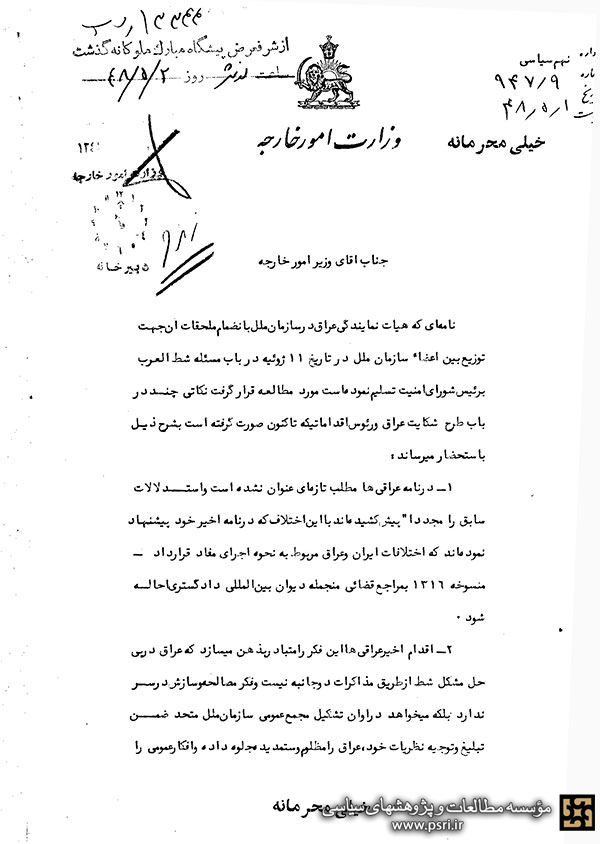 از شرفعرض پیشگاه مبارك ملوكانه گذشت
ساعت روز ۴۸/۵/۲
اداره نهم سیاسی
شماره ۹۴۷/۹
تاریخ ۴۸/۵/۱
وزارت امور خارجه
خیلی محرمانه
وزارت امور خارجه
دبیرخانه
جناب اقای وزیر امور خارجه
نامه‌ای که هیات نمایندگی عراق در سازمان ملل با نضمام ملحقات ان جهت
توزیع بین اعضاء سازمان ملل در تاریخ ۱۱ ژوئیه در باب مسئله شط العرب
برئیس شورای امنیت تسلیم نموده است مورد مطالعه قرار گرفت نکاتی چند در
باب طرح شکایت عراق و رئوس اقداماتیکه تاکنون صورت گرفته است بشرح ذیل
باستحضار میرساند :
۱ــ در نامه عراقی ها مطلب تازه‌ای عنوان نشده است و استدلالات
سابق را مجددا" پیش کشیده‌اند با این اختلاف که در نامه اخیر خود پیشنهاد
نموده‌اند که اختلافات ایران و عراق مربوط به نحوه اجرای مفاد قرارداد ــ
منسوخه ۱۳۱۶ بمراجع قضائی منجمله دیوان بین المللی دادگستری احاله
شود ۰
۲ــ اقدام اخیر عراقی ها این فکر را متبادر بذهن میسازد که عراق در پی
حل مشکل شط از طریق مذاکرات دوجانبه نیست و فکر مصالحه و سازش در سر
ندارد بلکه میخواهد در اوان تشکیل مجمع عمومی سازمان ملل متحد ضمن
تبلیغ و توجیه نظریات خود ، عراق را مظلوم و ستمدیده جلوه داده و افکار عمومی را
خیلی محرمانه
مؤسسه مطالعات و پژوهشهای سیاسی
www.psri.ir